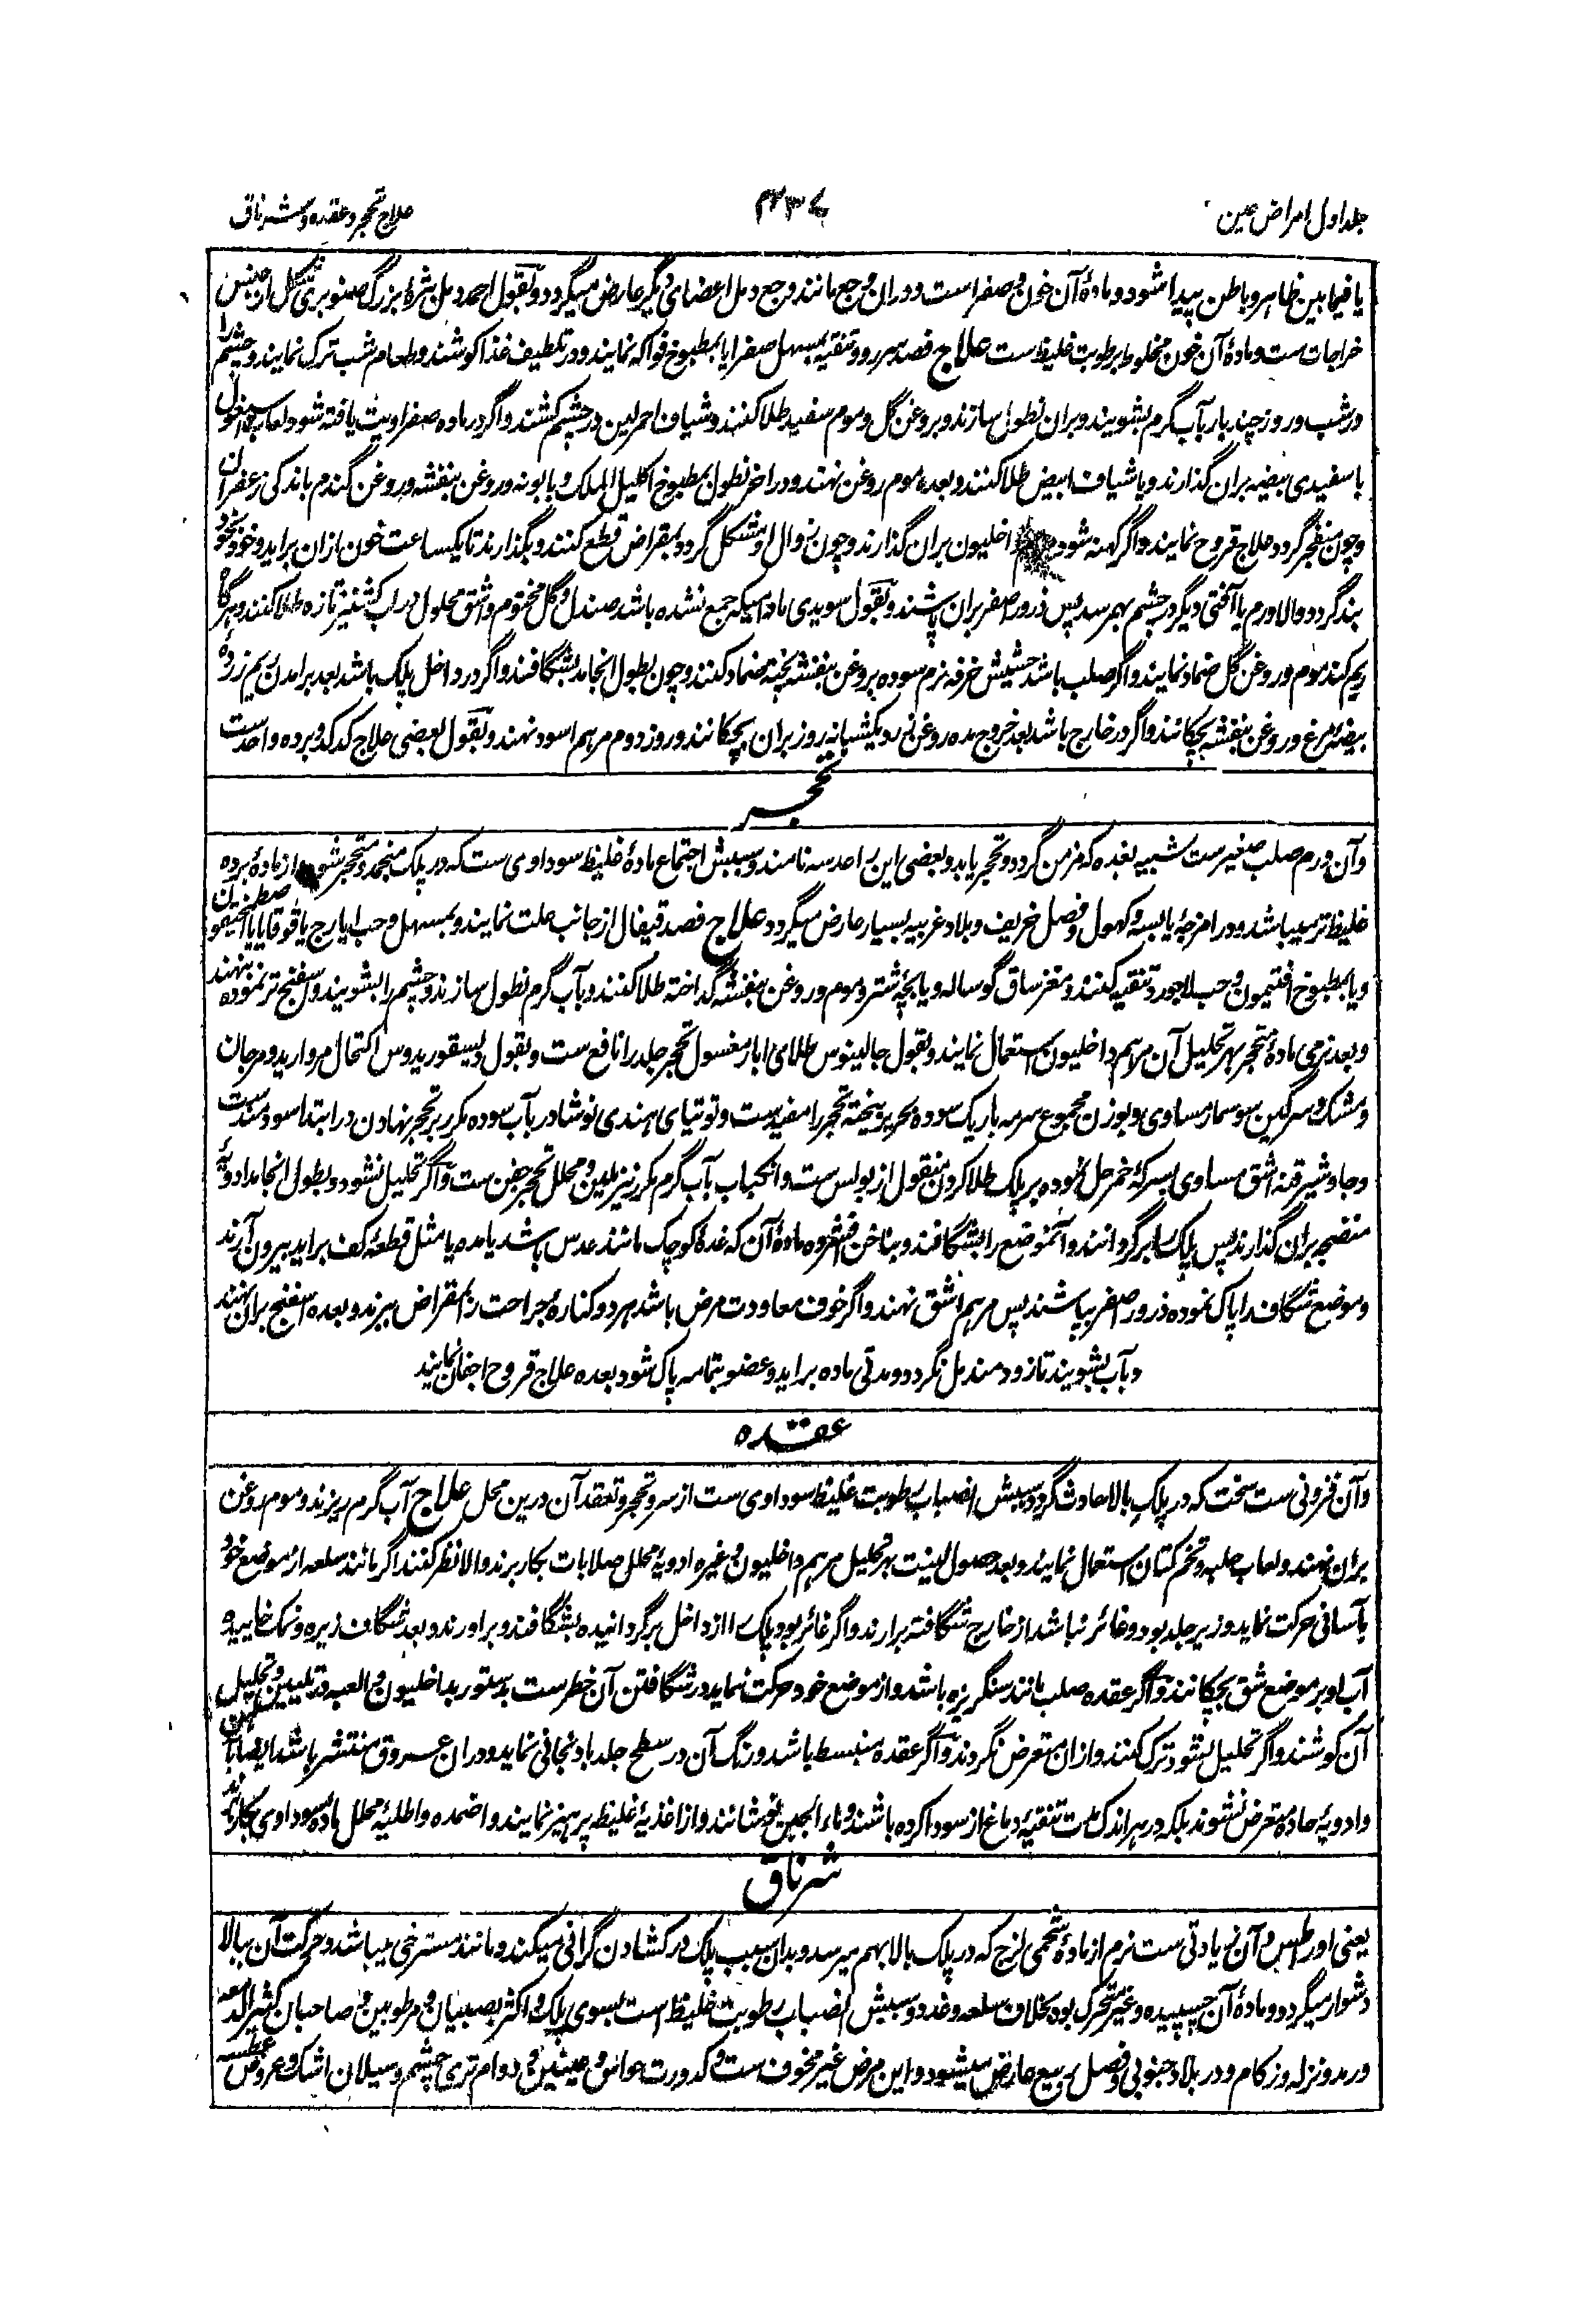 جلد اول امراض عین
۲۳۷
علاج تحجر و عقده و شرناق
یا فیما بین ظاهر و باطن پیدا شود و ماده آن خون و صفراست و دران وجع مانند وجع دمل اعضای دیگر عارض میگردد و بقول احمد دمل بثره بزرگ صنوبری شکل از جنس
خراجات ست و ماده آن خون مخلوط برطوبت غلیظ ست علاج فصد سررو و تنقیه بمسهل صفرا یا بمطبوخ فواکه نمایند و در تلطیف غذا کوشند و طعام شب ترک نمایند و چشم را
در شب و روز چند بار بآب گرم بشویند و بران نطول سازند و بروغن گل و موم سفید طلا کنند و شیاف احمر لین در چشم کشند و اگر در ماده صفراویت یافته شود لعاب اسپغول
با سفیدی بیضه بران گذارند و یا شیاف ابیض طلا کنند و بعده موم روغن نهند و در اخر نطول بمطبوخ اکلیل الملک و بابونه و روغن بنفشه و روغن گندم باندکی زعفران
و چون منفجر گردد علاج قروح نمایند و اگر کهنه شود داخلیون بران گذارند و چون زوال او مشکل گردد بمقراض قطع کنند و بگذارند تا یکساعت خون ازان براید و خود بخود
بند گردد والا ورم یا آفتی دیگر در چشم بهم رسد پس ذرور اصفر بران پاشند و بقول سویدی مادامیکه جمع نشده باشد صندل و گل مختوم و اشق محلول در آب کشنیز تازه طلا کنند و هرگاه
ریم کند موم و روغن گل ضماد نمایند و اگر صلب باشد حشیش خرفه نرم سوده بروغن بنفشه پخته ضماد کنند و چون بطول انجامد بشگافند و اگر در داخل پلک باشد بعد برامدن ریم زرده
بیضه مرغ و روغن بنفشه بچکانند و اگر در خارج باشد بعد خروج مده روغن زرد یکشبانه روز بران بچکانند و روز دوم مرهم اسود نهند و بقول بعضی علاج کدکد و برده واحد ست
تحجر
و آن ورم صلب صغیر ست شبیه بغده که مزمن گردد و تحجر یابد و بعضی این را عدسه نامند و سببش اجتماع ماده غلیظ سوداوی ست که در پلک منجمد و متحجر شود از ماده برده
غلیظ تر میباشد و در امزجه یابسه و کهول و فصل خریف و بلاد غربیه بسیار عارض میگردد علاج فصد قیفال از جانب علت نمایند و بمسهل و حب ایارج یا قوقایا یا اصطمخیقون
و یا بمطبوخ افتیمون و حب لاجورد تنقیه کنند و مغز ساق گوساله و یا بچه شتر و موم و روغن بنفشه گداخته طلا کنند و بآب گرم نطول سازند و چشم را بشویند و اسفنج تر نموده بنهند
و بعد نرمی ماده متحجر بهر تحلیل آن مرهم داخلیون استعمال نمایند و بقول جالینوس طلای ابار مغسول تحجر جلد را نافع ست و بقول دیسقوریدوس اکتحال مروارید و مرجان
و مشک و سرگین سوسمار مساوی و بوزن مجموع سرمه باریک سوده بحریر بیخته تحجر را مفید ست و توتیای هندی نوشادر بآب سوده مکرر بر تحجر نهادن در ابتدا سودمند ست
و جاوشیر قنه اشق مساوی بسرکه خمر حل نموده بر پلک طلا کردن منقول از بولس ست و انکباب بآب گرم مکرر نیز ملین و محلل تحجر جفن ست و اگر تحلیل نشود و بطول انجامد ادویه
منضجه بران گذارند پس پلک را برگردانند و آنموضع را بشگافند و بناخن فشرده ماده آن که غده کوچک مانند عدس باشد یا مده یا مثل قطعه کف براید بیرون آرند
و موضع شگاف را پاک نموده ذرور اصفر بپاشند پس مرهم اشق نهند و اگر خوف معاودت مرض باشد هر دو کناره جراحت را بمقراض ببرند و بعده اسفنج بران نهند
و بآب بشویند تا زود مندمل نگردد و مدتی ماده براید و عضو بتمامه پاک شود بعده علاج قروح اجفان نمایند
عقده
و آن فزونی ست سخت که در پلک بالا حادث گردد و سببش انصباب رطوبت غلیظ سوداوی ست از سر و تحجر و تعقد آن درین محل علاج آب گرم ریزند و موم روغن
بران نهند و لعاب حلبه و تخم کتان استعمال نمایند و بعد حصول لینت بهر تحلیل مرهم داخلیون و غیره ادویه محلل صلابات بکار برند والا نظر کنند اگر مانند سلعه از موضع خود
بآسانی حرکت نماید و زیر جلد بود و غائر نباشد از خارج شگافته برارند و اگر غائر بود پلک را از داخل برگردانیده بشگافند و براورند و بعد شگاف زیره و نمک خاییده
آب او بر موضع شق بچکانند و اگر عقده صلب مانند سنگریزه باشد و از موضع خود حرکت ننماید در شگافتن آن خطر ست بدستور بداخلیون و العبه در تلیین و تحلیل
آن کوشند و اگر تحلیل نشود ترک کنند و ازان متعرض نگردند و اگر عقده منبسط باشد و رنگ آن در سطح جلد بادنجانی نماید و دران عروق منتشر باشد ایضا بآهن
و ادویه حاده متعرض نشوند بلکه در هر اندک مدت تنقیه دماغ از سودا کرده باشند و ماء الجبن نوشانند و از اغذیه غلیظ پرهیز نمایند و اضمده و اطلیه محلل ماده سوداوی بکار برند
شرناق
یعنی اورطیس و آن زیادتی ست نرم از ماده شحمی لزج که در پلک بالا بهم میرسد و بدان سبب پلک در کشادن گرانی میکند و مانند مسترخی میباشد و حرکت آن ببالا
دشوار میگردد و ماده آن چسپیده و غیر متحرک بود بخلاف سلعه و غدد و سببش انصباب رطوبت غلیظ است بسوی پلک و اکثر بصبیان و مرطوبین و صاحبان کثیر الدمعه
و رمد و نزله و زکام و در بلاد جنوبی و فصل ربیع عارض میشود و این مرض غیر مخوف ست و کدورت حواس و دوام تری چشم و سیلان اشک و عروض عطسه